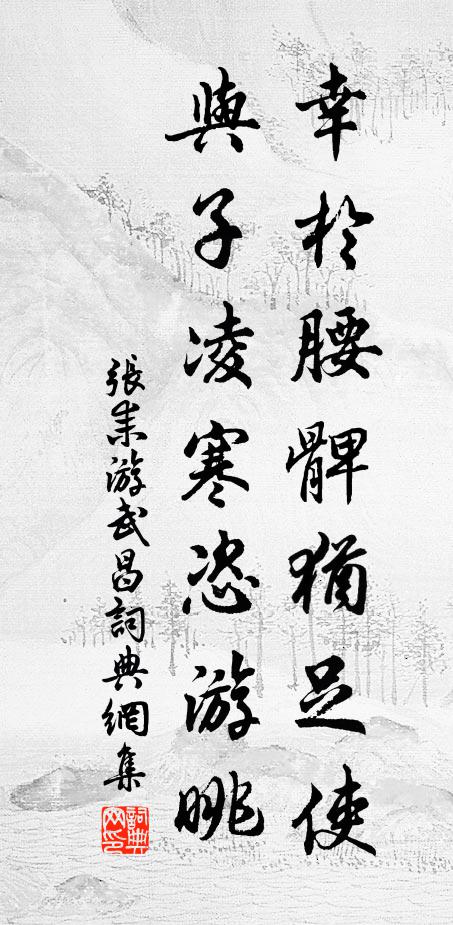 幸於腰髀猶足使
與子凌寒恣游眺
張耒游武昌詞典網集
詞典网印